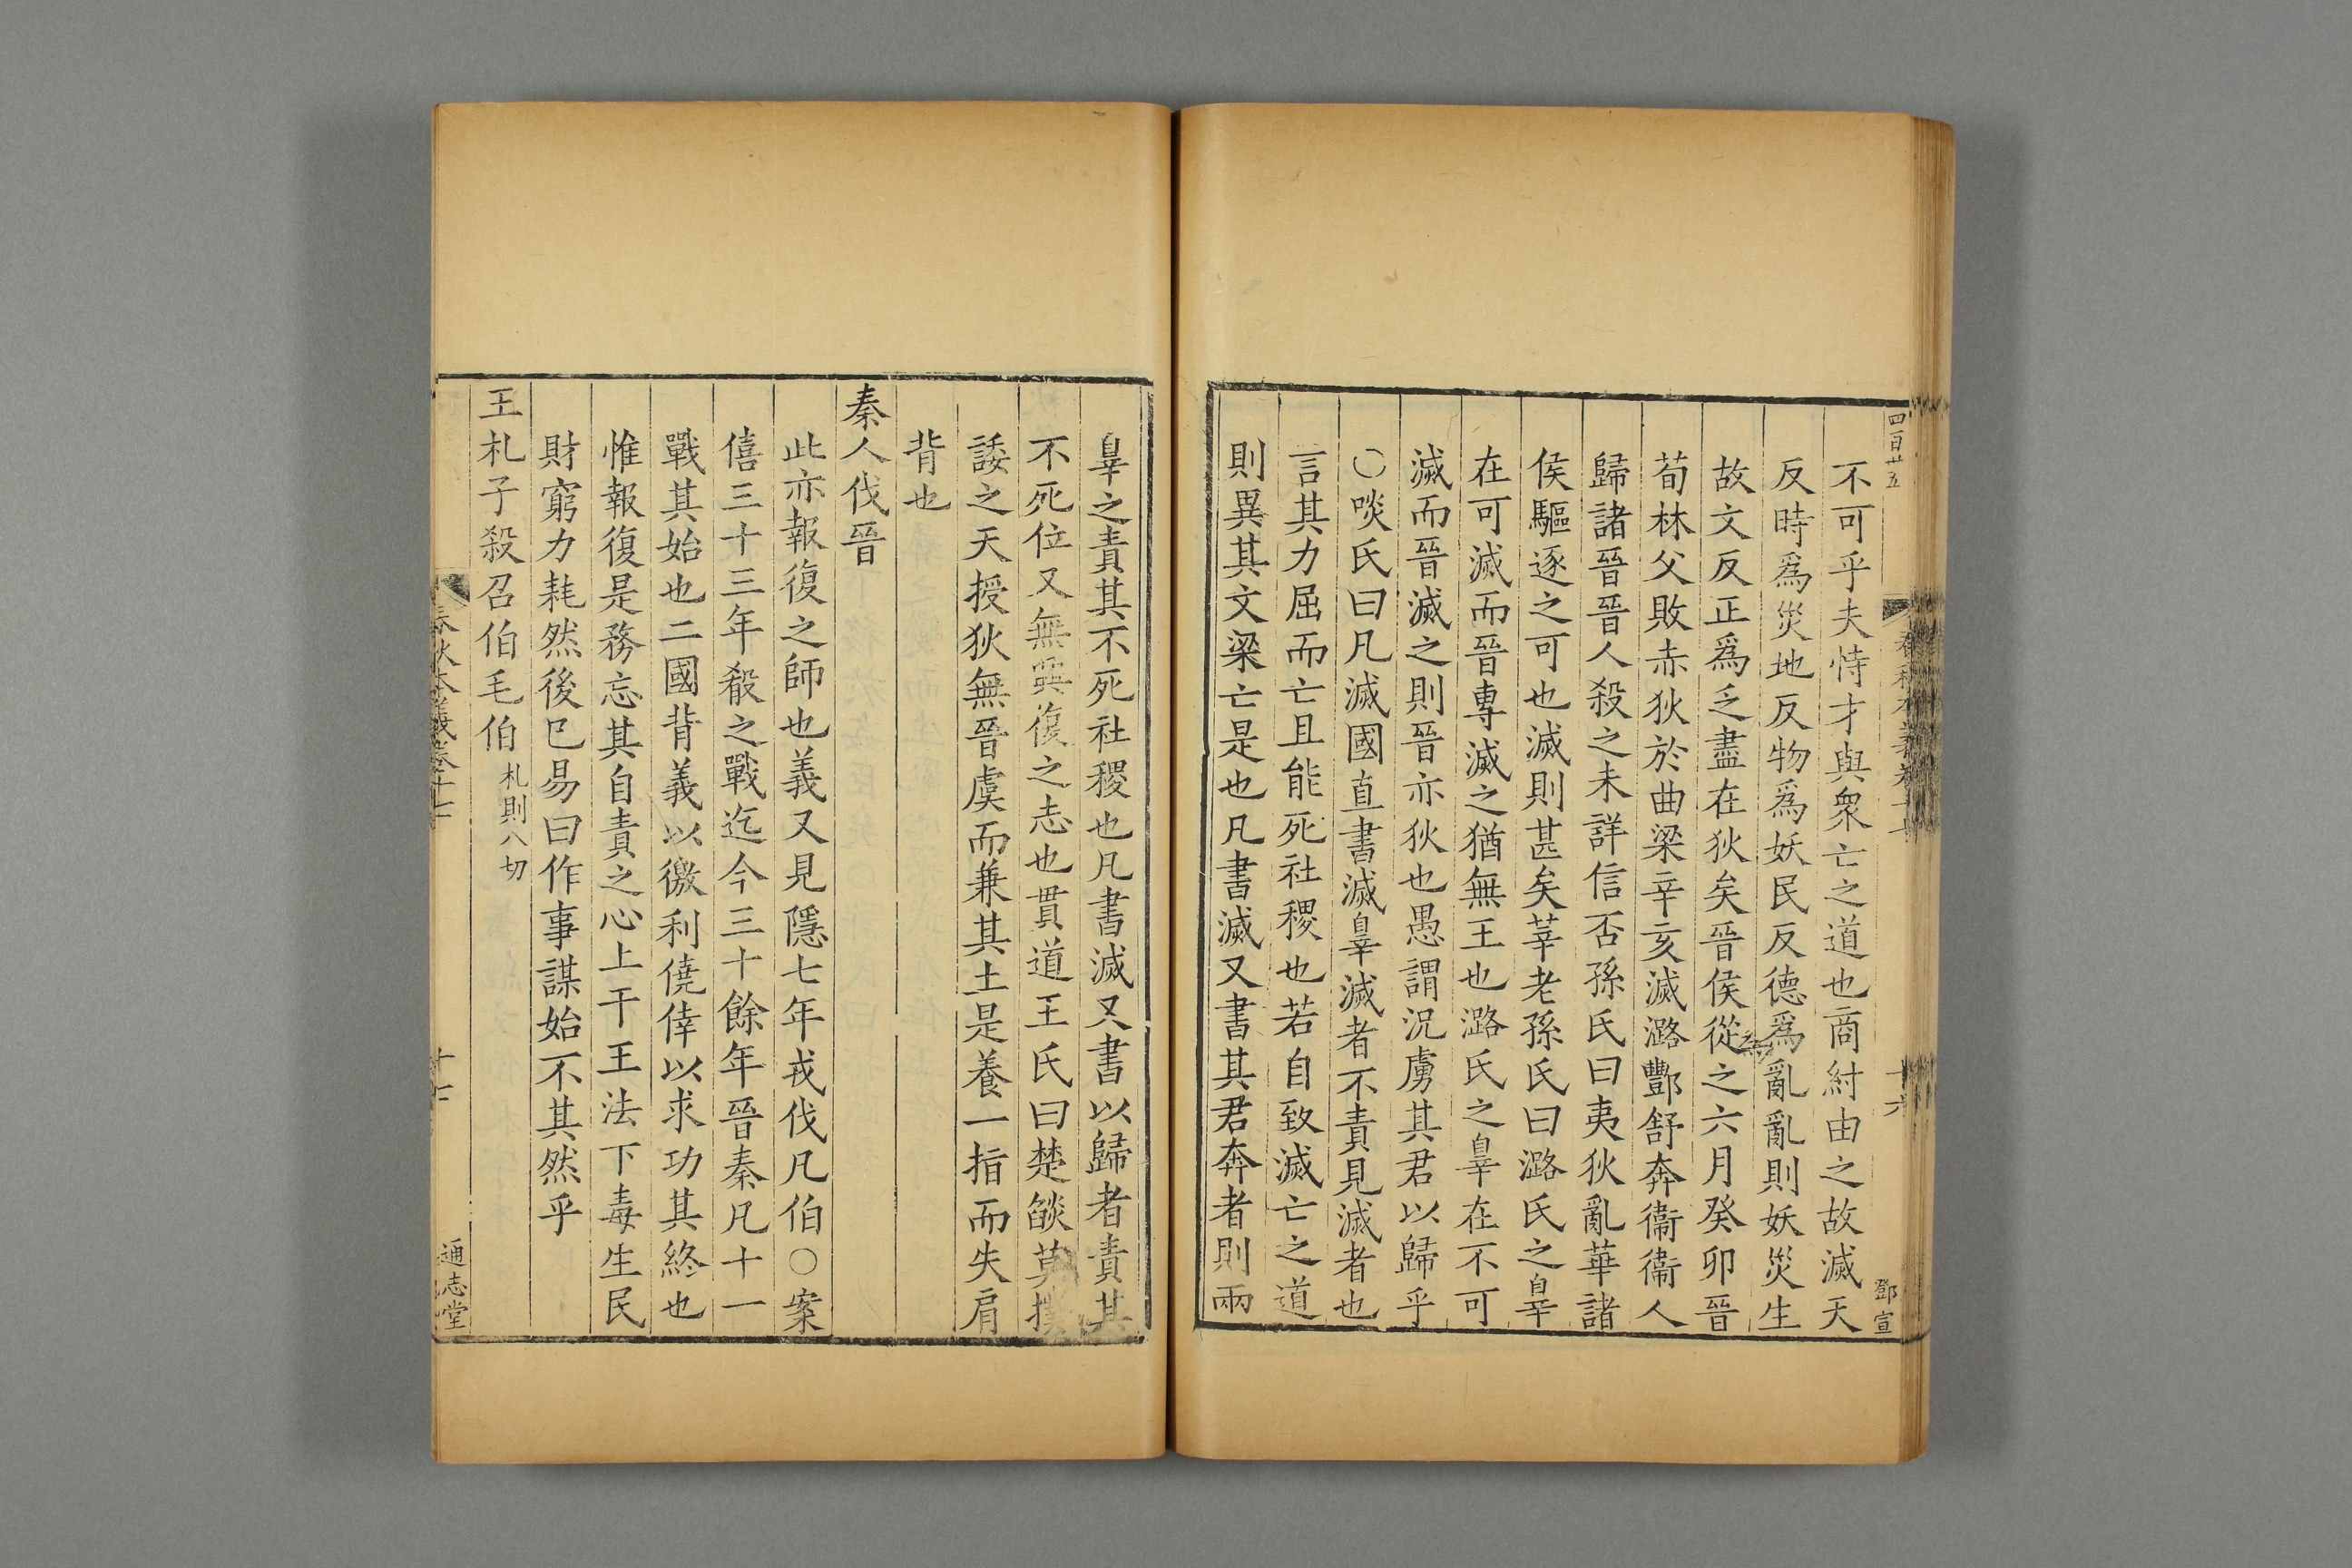 四百廿五
鄧宣
不可乎夫恃才與衆亡之道也商紂由之故滅天
反時爲災地反物爲妖民反德爲亂亂則妖災生
故文反正爲乏盡在狄矣晉侯從之六月癸卯晉
荀林父敗赤狄於曲梁辛亥滅潞酆舒奔衞衞人
歸諸晉晉人殺之未詳信否孫氏曰夷狄亂華諸
侯驅逐之可也滅則甚矣莘老孫氏曰潞氏之辠
在可滅而晉專滅之猶無王也潞氏之辠在不可
滅而晉滅之則晉亦狄也愚謂況虜其君以歸乎
○啖氏曰凡滅國直書滅辠滅者不責見滅者也
言其力屈而亡且能死社稷也若自致滅亡之道
則異其文梁亡是也凡書滅又書其君奔者則兩
辠之責其不死社稷也凡書滅又書以歸者責其
不死位又無興復之志也貫道王氏曰楚燄莫撲
諉之天授狄無晉虞而兼其土是養一指而失肩
背也
秦人伐晉
此亦報復之師也義又見隱七年戎伐凡伯○案
僖三十三年殽之戰迄今三十餘年晉秦凡十一
戰其始也二國背義以徼利僥倖以求功其終也
惟報復是務忘其自責之心上干王法下毒生民
財窮力耗然後已易曰作事謀始不其然乎
王札子殺召伯毛伯札則八切
春秋本義卷十七
十七
通志堂